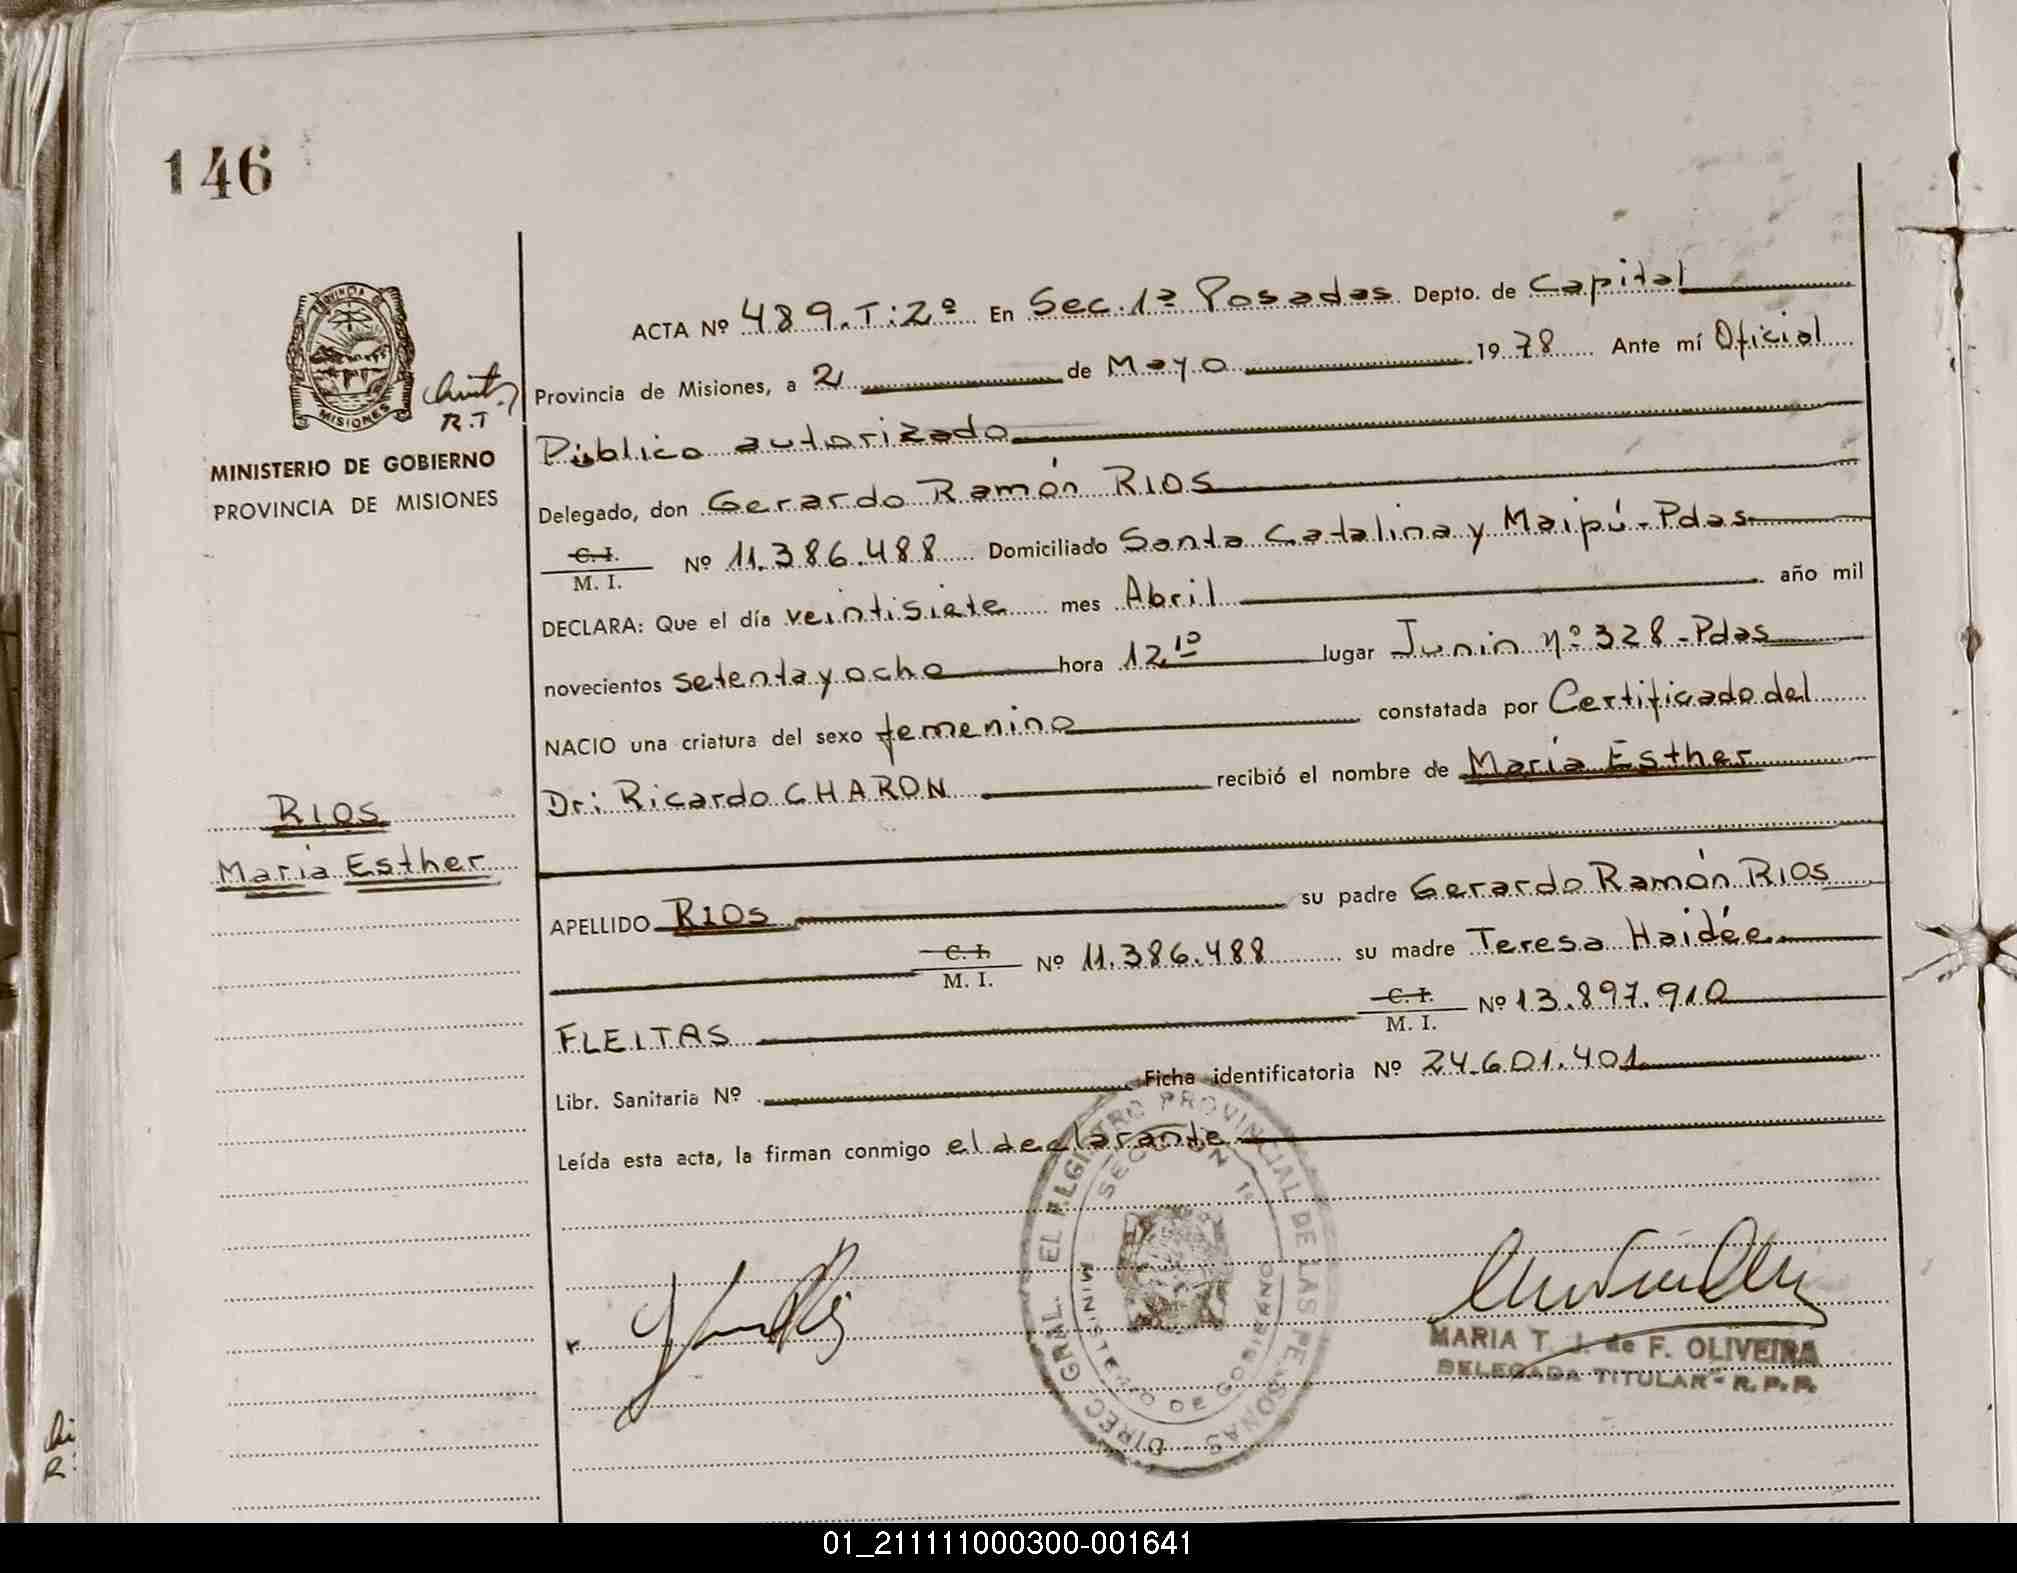 146
PROVINCIA DE
MISIONES
R.T
MINISTERIO DE GOBIERNO
PROVINCIA DE MISIONES
RIOS
María Esther
ACTA Nº 489.T:2º En Sec.1ª Posadas Depto. de Capital
Provincia de Misiones, a 2 de Mayo 1978 Ante mí Oficial
Público autorizado
Delegado, don Gerardo Ramón RIOS
C. I.
M. I. Nº 11.386.488 Domiciliado Santa Catalina y Maipú-Pdas
DECLARA: Que el día veintisiete mes Abril año mil
novecientos setenta y ocho hora 12 10 lugar Junin nº 328-Pdas
NACIO una criatura del sexo femenino constatada por Certificado del
Dr: Ricardo CHARON recibió el nombre de María Esther
APELLIDO RIOS su padre Gerardo Ramón RIOS
C. I.
M. I. Nº 11.386.488 su madre Teresa Haidée
FLEITAS C. I.
M. I. Nº 13.897.910
Libr. Sanitaria Nº Ficha identificatoria Nº 24.601.401
Leída esta acta, la firman conmigo el declarante
DIREC. GRAL. EL REGISTRO PROVINCIAL DE LAS PERSONAS
SECCION 1ª
MINISTERIO DE GOBIERNO
MARIA T. J. de F. OLIVEIRA
DELEGADA TITULAR - R. P. P.
01_211111000300-001641